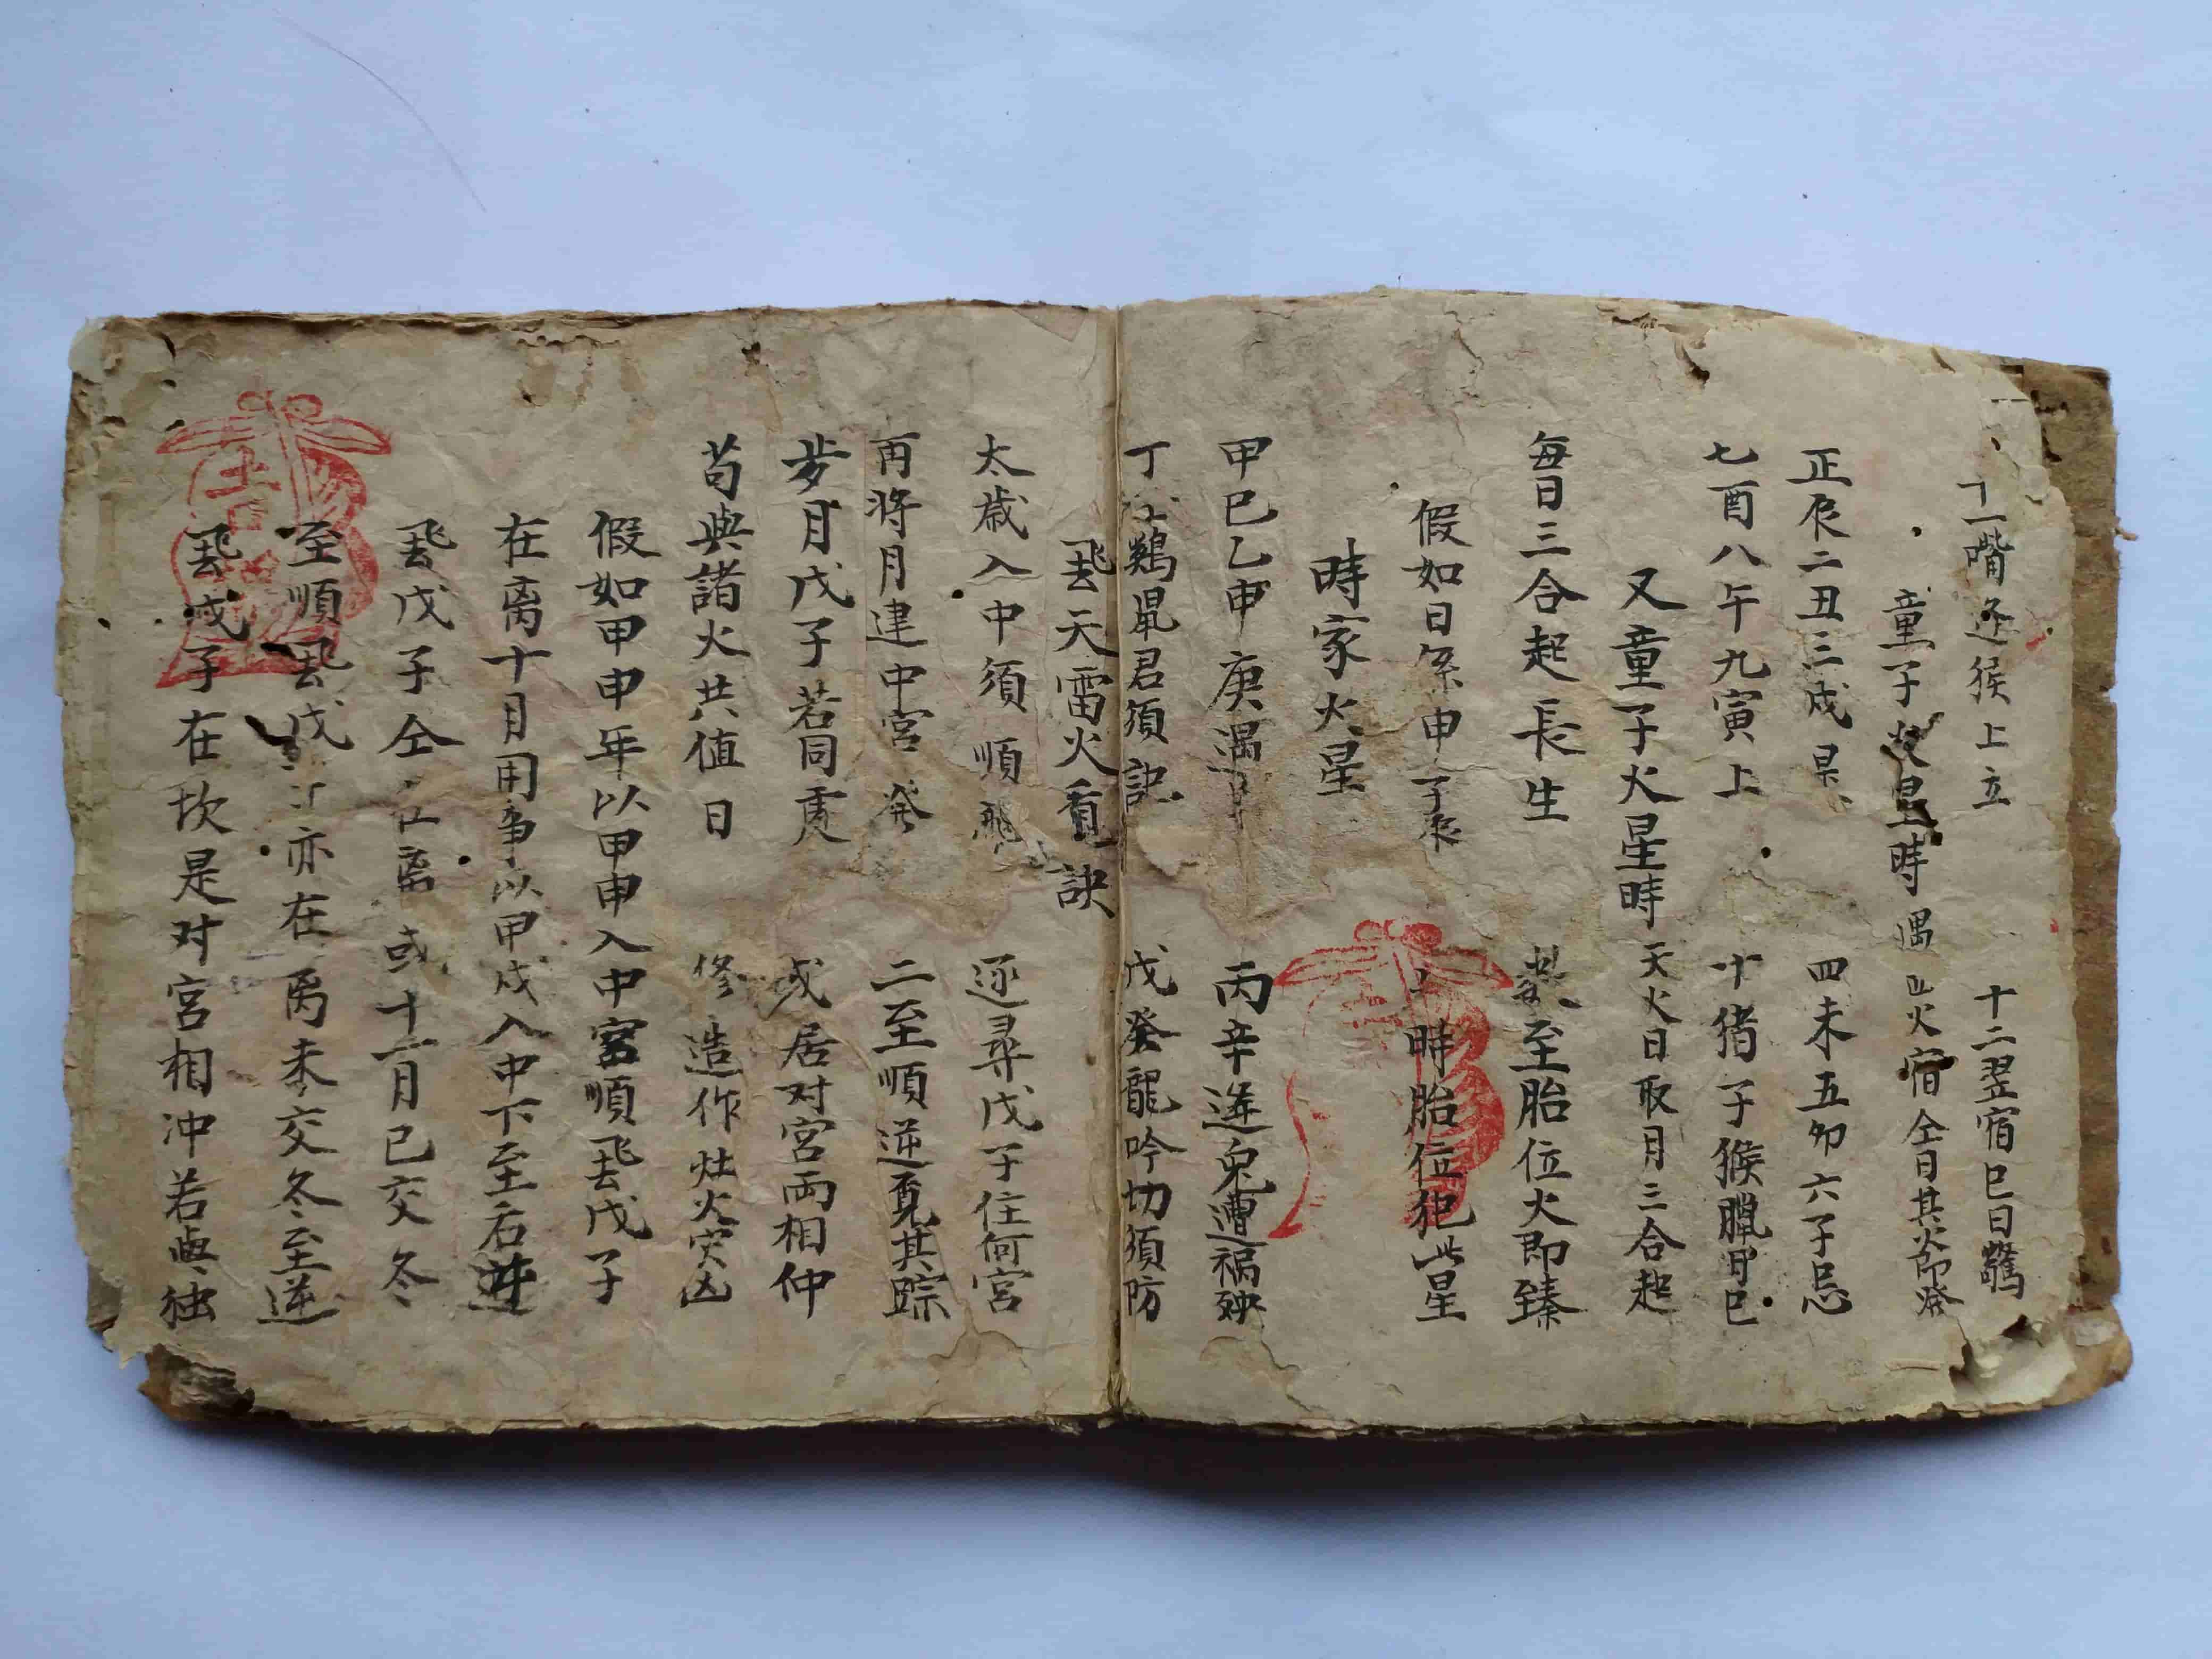 十一嘴逢猴上立 十二翌宿巳日驚
童子火星時遇四火宿仝日其火即發
正辰二丑三戍是 四未五卯六子忌
七酉八午九寅上 十猪子猴臘月巳
又童子火星時天火日取月三合起
每日三合起長生 數至胎位火即臻
假如日係申子辰 時胎位犯此星
時家火星
甲巳乙申庚遇 丙辛逢兔遭禍殃
丁 鷄鼠君須記 戊癸龍吟切須防
飛天雷火看訣
太歲入中須順飛 逐尋戊子住何宮
再將月建中宮發 二至順逆覓其踪
步月戊子若同度 或居对宮両相冲
茍與諸火共值日 修造作灶火災凶
假如甲申年以甲申入中宮順飛戊子
在离十月用事以甲戍入中下至后逆
飛戊子仝在离或十一月已交冬
至順飛戊子亦在离未交冬至逆
飛戊子在坎是对宮相冲若與独